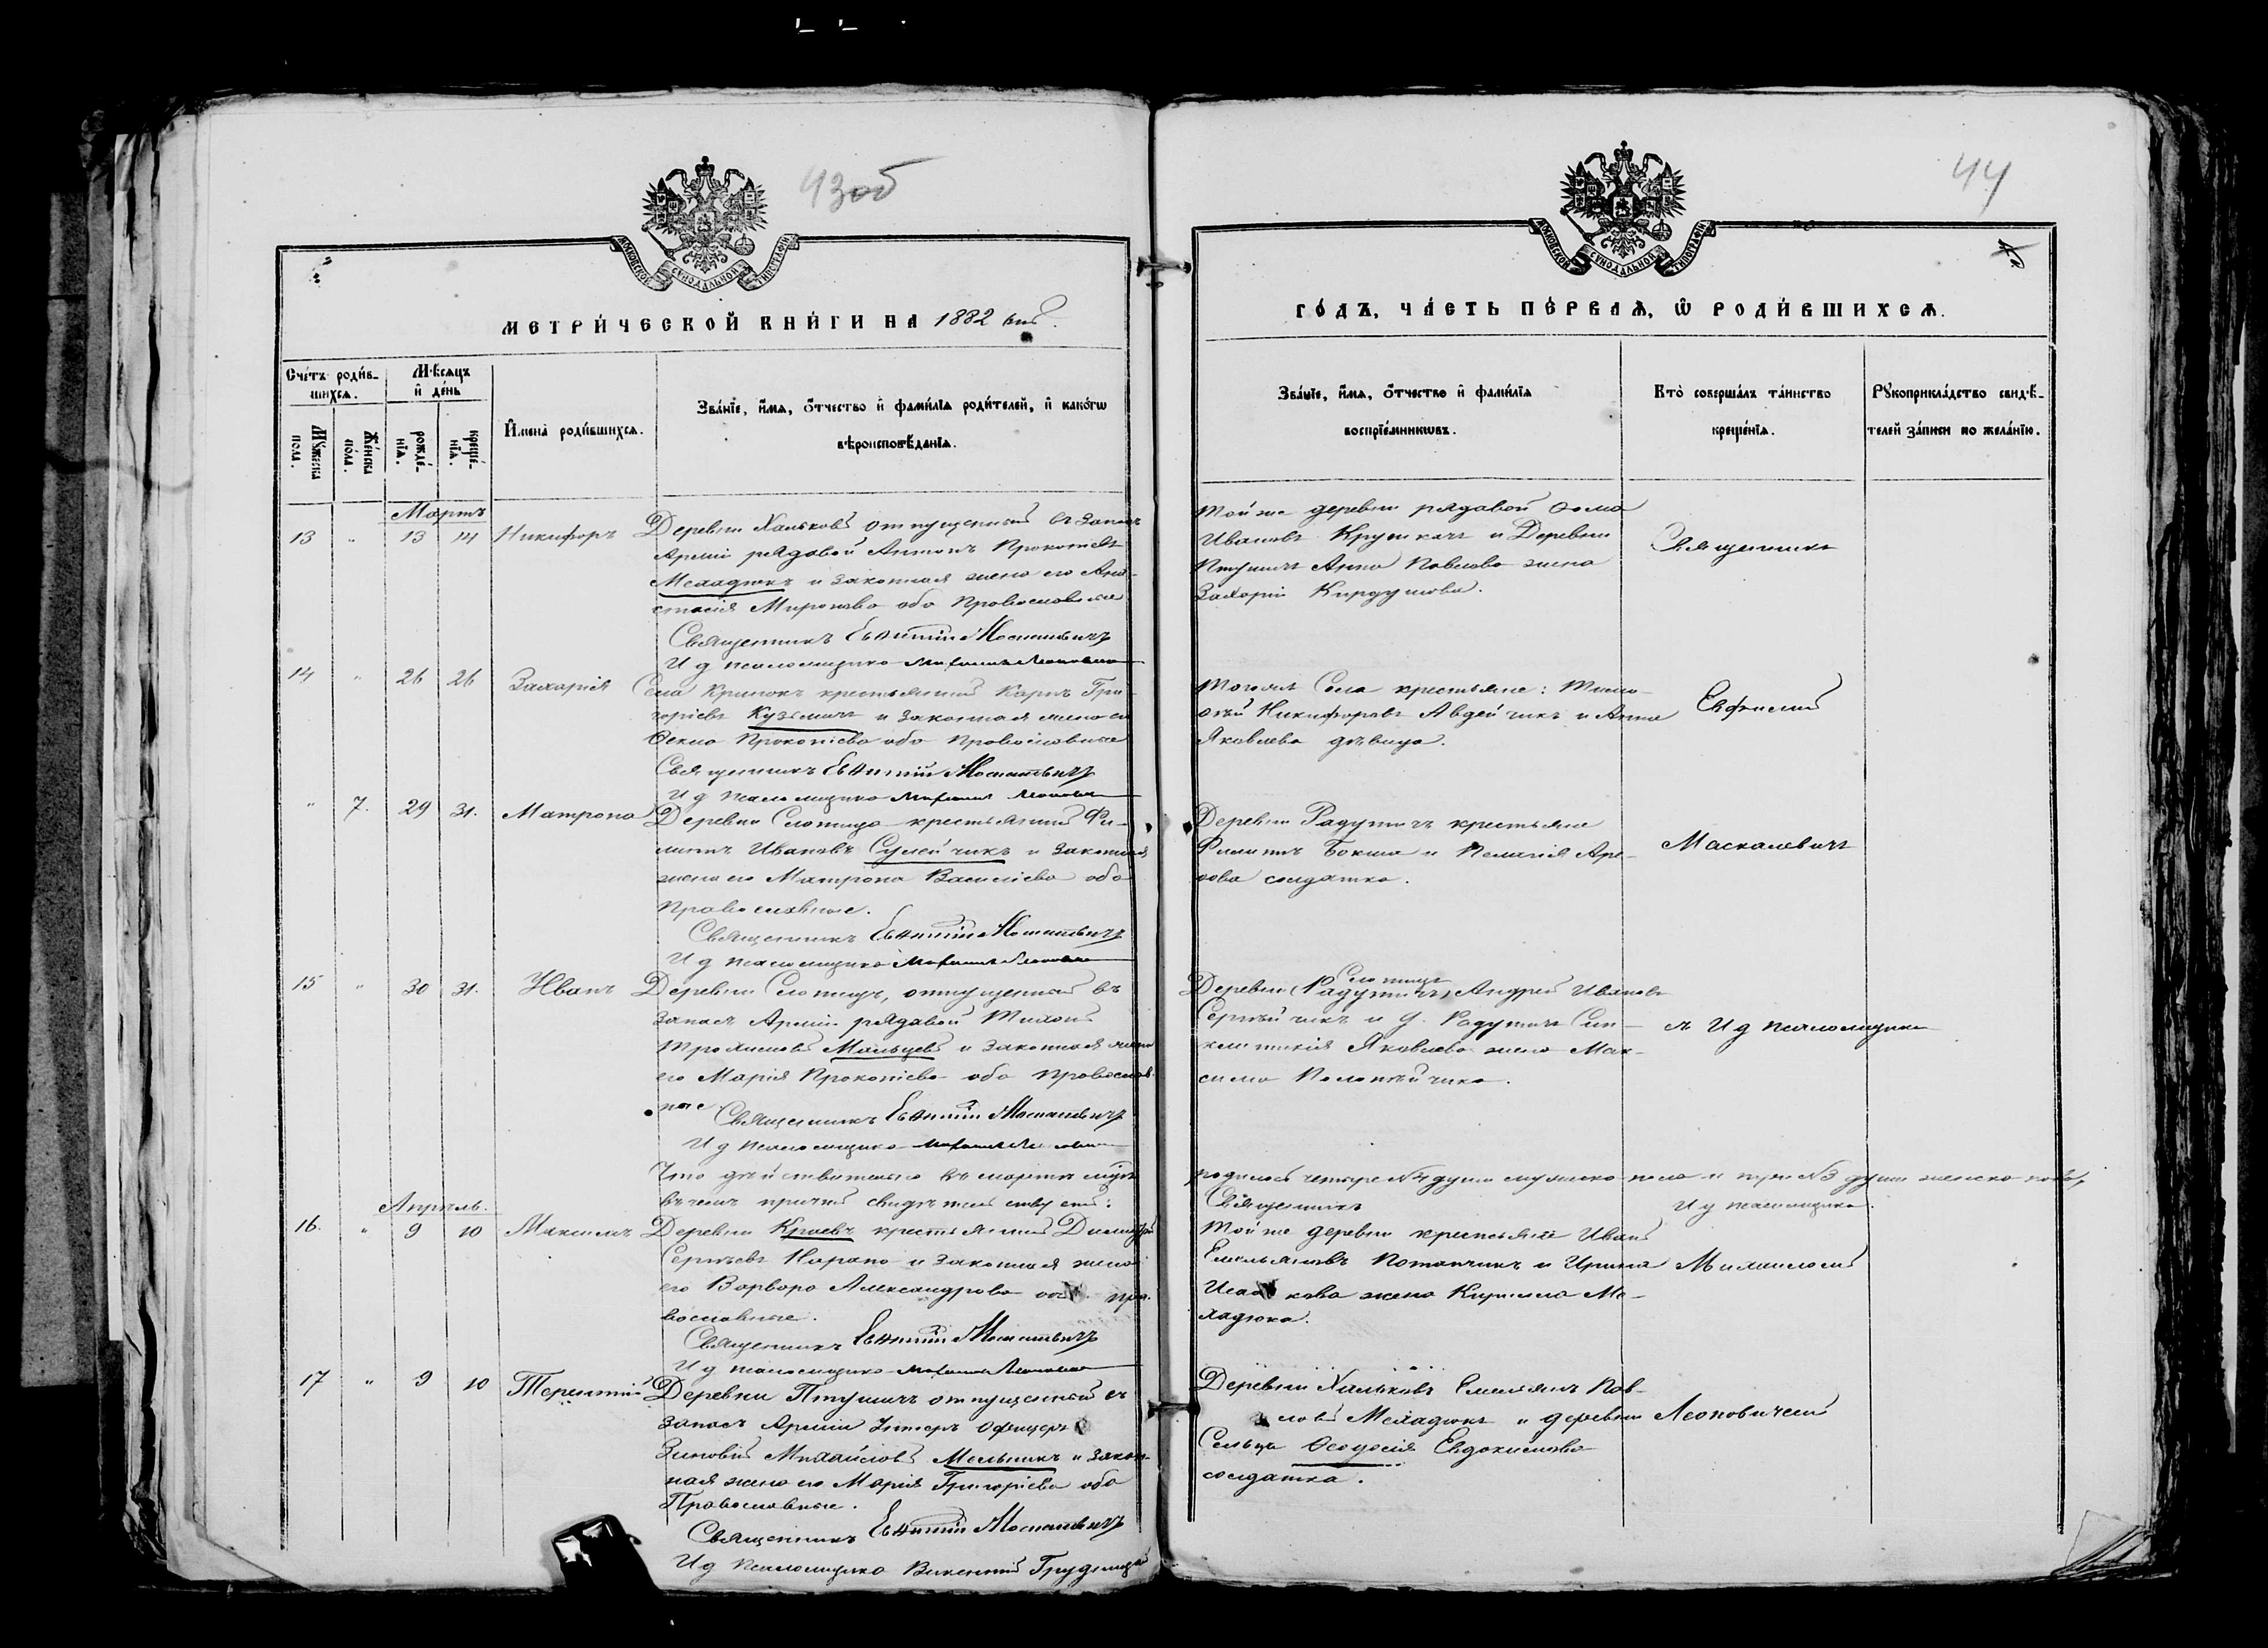 43об
МОСКОВСКОЙ СѴНОДАЛЬНОЙ ТИПОГРАФІИ
МЕТРИ́ЧЕСКОЙ КНИ́ГИ НА 1882 год.
Счётъ роди́вшихсѧ.
Мѣ́сѧцъ и҆ де́нь
Мꙋ́жеска по́ла.
Же́нска по́ла.
рожде́нїѧ.
креще́нїѧ.
И҆мена̀ роди́вшихсѧ.
Зва́нїе, и҆́мѧ, ѻ҆́тчество и҆ фами́лїѧ роди́телей, и҆ како́гѡ
вѣроисповѣ́данїѧ.
Мартъ
13 " 13 14 Никифоръ Деревни Хальковъ отпущенный въ запасъ
Арміи рядовой Антонъ Прокопіевъ
Меладюкъ и законная жена его Ана-
стасія Миронова оба Православные
Священникъ Евѳимій Москалевичъ
И д псаломщика
14 " 26 26 Захарія Села Кринокъ крестьянинъ Карпъ Гри-
горіевъ Кузьмичъ и законная жена его
Ѳекла Прокопіева оба православные
Священникъ Евѳимій Москалевичъ
И д псаломщика
" 7. 29 31. Матрона Деревни Слотица крестьянинъ Фи-
липпъ Ивановъ Сулейчикъ и законная
жена его Матрона Василіева оба
Православные.
Священникъ Евѳимій Москалевичъ
И д псаломщика
15 " 30 31. Иванъ Деревни Слотицъ, отпущенный въ
запасъ Арміи рядовой Тихонъ
Трохимовъ Мальцевъ и законная жена
его Марія Прокопіева оба православ-
ные Священникъ Евѳимій Москалевичъ
И д псаломщика
Что дѣйствительно въ мартѣ мцѣ
въ чемъ причтъ свидѣтельствуетъ:
Апрѣль.
16. " 9 10 Максимъ Деревни Краевъ крестьянинъ Димитрій
Сергѣевъ Карано и законная жена
его Варвара Александрова оба пра-
вославные.
Священникъ Евѳимій Москалевичъ
И д псаломщика
17 " 9 10 Терентій Деревни Птушичъ отпущенный въ
запасъ Арміи Унтеръ Офицеръ
Зиновій Михайловъ Мельникъ и закон-
ная жена его Марія Григоріева оба
Православные.
Священникъ Евѳимій Москалевичъ
И д псаломщика Викентій
44
МОСКОВСКОЙ СѴНОДАЛЬНОЙ ТИПОГРАФІИ
ГО́ДЪ, ЧА́СТЬ ПЕ́РВАѦ, Ѡ҆ РОДИ́ВШИХСѦ.
Зва́нїе, и҆́мѧ, ѻ҆́тчество и҆ фами́лїѧ
воспрїе́мникѡвъ.
Кто̀ соверша́лъ та́инство
креще́нїѧ.
Рꙋкоприкла́дство свидѣ́-
телей за́писи по жела́нїю.
Той же деревни рядовой Ѳома
Ивановъ Крупкачъ и Деревни
Птушичъ Анна Павлова жена
Захарія Кирдунова.
Священникъ
Того же Села крестьяне: Тимо-
ѳей Никифоровъ Авдейчикъ и Анна
Яковлева дѣвица.
Евѳимій
Деревни Радутичъ крестьяне
Филиппъ Бокша и Пелагія Аре-
ѳова солдатка.
Маскалевичъ
Слотицъ
Деревни (Радутичъ) Андрей Ивановъ
Сергѣйчикъ и д. Радутичъ Син-
клитикія Яковлева жена Мак-
сима Пелопѣйчика.
съ И д псаломщика
родилось четыре №4 души мужеска пола и три №3 души женска пола,
Священникъ
И д псаломщика.
Той же деревни крестьяне Иванъ
Емельяновъ Потапчикъ и Ирина
Исаакова жена Кирилла Ме-
ладюка.
Михаиломъ
Деревни Хальковъ Емельянъ Пав-
ловъ Меладюкъ и деревни
Сельца Ѳеодосія Евдокимова
солдатка.
Леоновичемъ